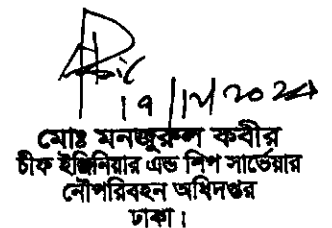 19/12/2024
মোঃ মনজুরুল কবীর
চীফ ইঞ্জিনিয়ার এন্ড শিপ সার্ভেয়ার
নৌপরিবহন অধিদপ্তর
ঢাকা।